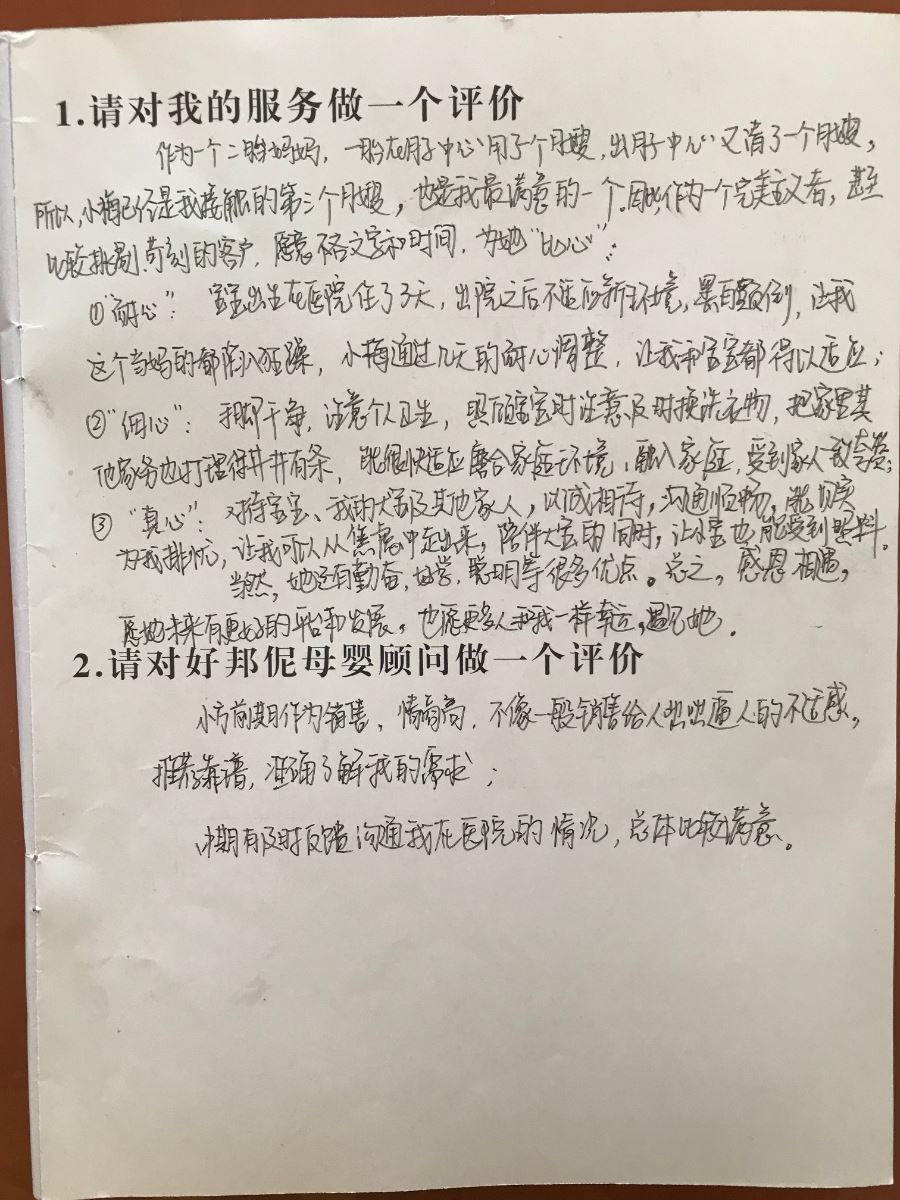 1.请对我的服务做一个评价
作为一个二胎妈妈，一胎在月子中心用了个月嫂，出月子中心又请了一个月嫂，
所以，小梅已经是我接触的第三个月嫂，也是我最满意的一个。因此作为一个完美主义者，甚至
比较挑剔、苛刻的客户，愿意不吝文字和时间，为她“比心”：
①“耐心”：宝宝出生在医院住了3天，出院之后不适应新环境，黑白颠倒，让我
这个当妈的都陷入狂躁，小梅通过几天的耐心调整，让我和宝宝都得以适应；
②“细心”：手脚干净，注意个人卫生，照顾宝宝时注意及时换洗衣物，把家里其
他家务也打理得井井有条，能很快适应磨合家庭环境，融入家庭，受到家人一致夸赞；
③“真心”：对待宝宝、我的大宝及其他家人，以诚相待，沟通顺畅，能切实
为我排忧，让我可以从焦虑中走出来，陪伴大宝的同时，让小宝也能受到照料。
当然，她还有勤奋，好学，聪明等很多优点。总之，感恩相遇，
愿她未来有更好的平台和发展，也愿更多人和我一样幸运，遇见她．
2.请对好邦伲母婴顾问做一个评价
小方前期作为销售，情商高，不像一般销售给人咄咄逼人的不适感，
推荐靠谱，准确了解我的需求；
中期有及时反馈沟通我在医院的情况，总体比较满意。